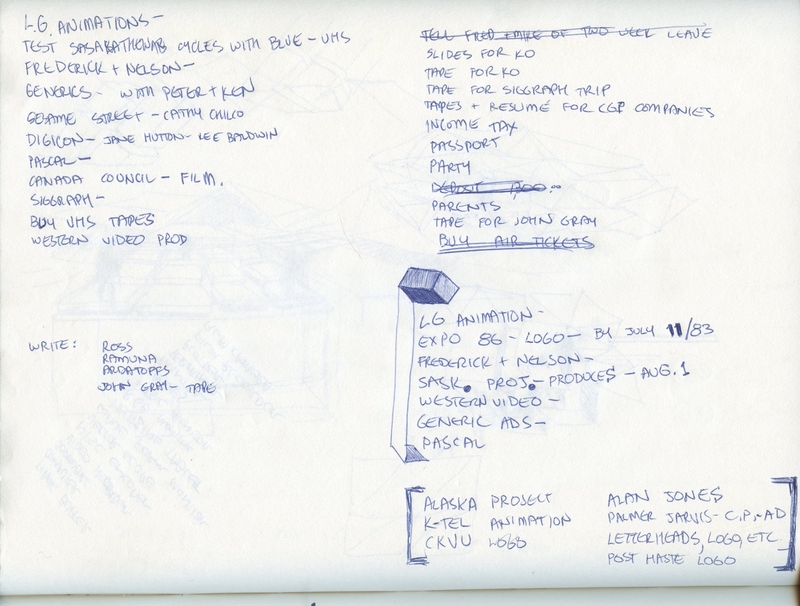 L.G. ANIMATIONS -
TEST SASAKATHEWAB CYCLES WITH BLUE - VHS
FREDERICK + NELSON -
GENERICS - WITH PETER + KEN
SESAME STREET - CATHY CHILCO
DIGICON - JANE HUTTON - LEE BALDWIN
PASCAL -
CANADA COUNCIL - FILM.
SIGGRAPH -
BUY VHS TAPES
WESTERN VIDEO PROD
WRITE: ROSS
RAMUNA
ARDATOFFS
JOHN GRAY - TAPE
TELL FRED + MIKE OF TWO WEEK LEAVE
SLIDES FOR KO
TAPE FOR KO
TAPE FOR SIGGRAPH TRIP
TAPES + RESUMÉ FOR CGI COMPANIES
INCOME TAX
PASSPORT
PARTY
DEPOSIT 1,300.-
PARENTS
TAPE FOR JOHN GRAY
BUY AIR TICKETS
LG ANIMATION -
EXPO 86 - LOGO - BY JULY 11/83
FREDERICK + NELSON -
SASK. PROJ. - PRODUCES - AUG. 1
WESTERN VIDEO -
GENERIC ADS -
PASCAL
ALASKA PROJECT
K-TEL ANIMATION
CKVU LOGO
ALAN JONES
PALMER JARVIS - C.P. - AD
LETTERHEADS, LOGO, ETC.
POST HASTE LOGO